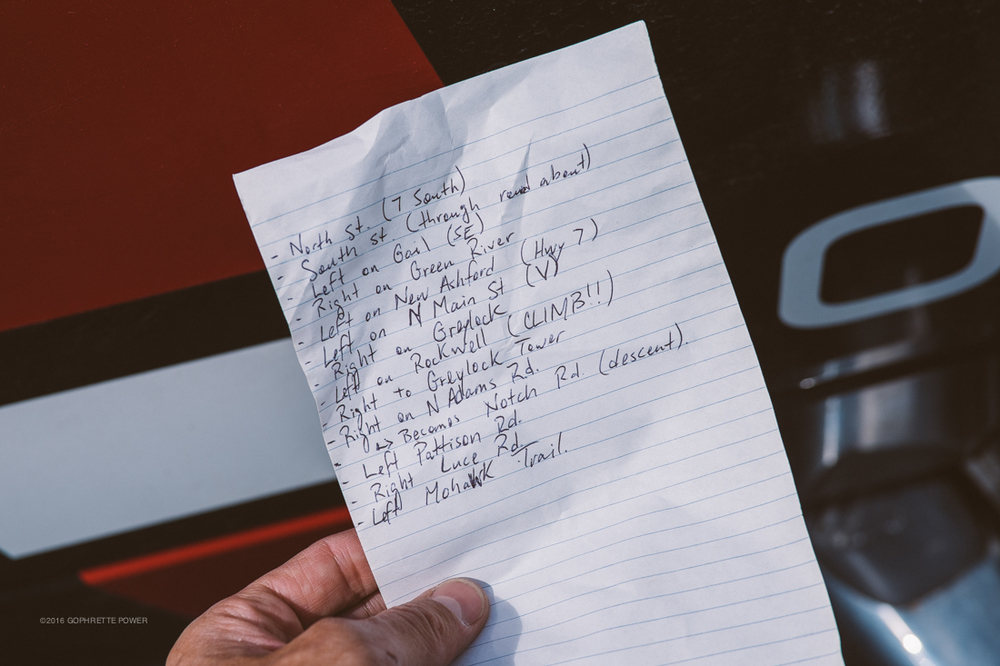 - North St. (7 South)
- South St (through roundabout)
- Left on Gail (SE)
- Right on Green River
- Left on New Ashford (Hwy 7)
- Left on N Main St (V)
- Right on Greylock
- Left on Rockwell (CLIMB!!)
- Right to Greylock Tower
- Right on N Adams Rd.
↳ Becomes Notch Rd. (descent).
- Left Pattison Rd.
- Right Luce Rd.
- Left Mohawk Trail.
©2016 GOPHRETTE POWER